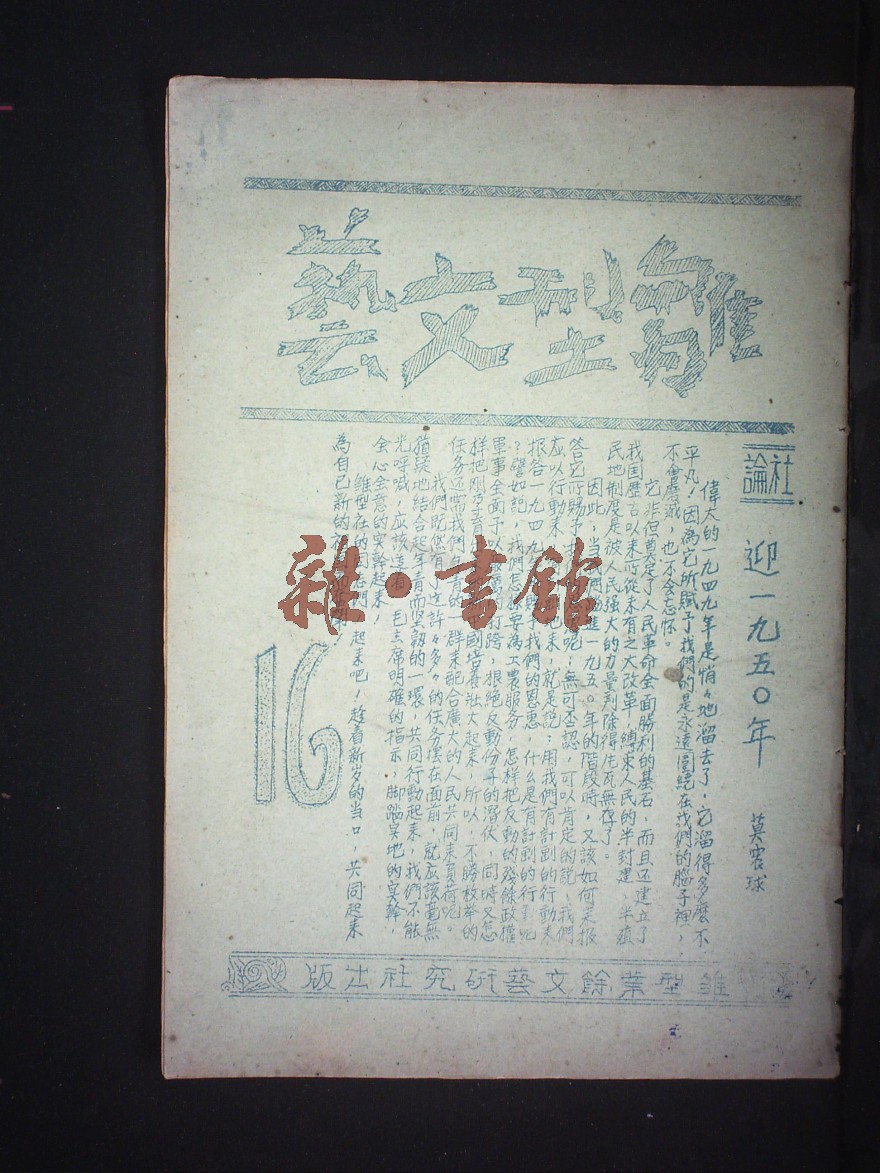 雛型文藝
社論
迎一九五〇年
莫寰球
偉大的一九四九年是悄々地溜去了，它溜得多麼不
平凡！因為它所賦予我們的是永遠圍繞在我們的腦子裡，
不會磨滅，也不會忘怀。
它非但奠定了人民革命全面勝利的基石，而且还建立了
我国歷古以來所從未有之大改革，縛束人民的半封建，半殖
民地制度是被人民強大的力量剷除得片瓦無存了。
因此，当我們進一九五〇年的階段時，又該如何来报
答它所賜予呢；無可否認，可以肯定的說，我們
应以行動来来，就是說：用我們有計劃的行動来
报答一九四九我們的恩惠，什么是有計劃的行動呢
？譬如説，我們怎樣要為工農服务，怎样把反動的殘餘政權
軍事全面予以打跨，根絕反動份子的潛伏，同時又怎
样把剛孕育国培養壯大起来，所以，不勝枚举的
任务还需我們年青的群来配合廣大的人民共同来負荷呢。
我們既然有了这許々多々的任务擺在面前，就应該毫無
猶疑地結合起年青而堅韌的一環，共同行動起来，我們不能
光呼喊，应該遵着毛主席明確的指示，脚踏实地的实幹，
全心全意的实幹起来！
雛型社的同志們，起来吧！趁着新岁的当口，共同起来
為自己新的
16
雛型業餘文藝研究社出版
雜·書館